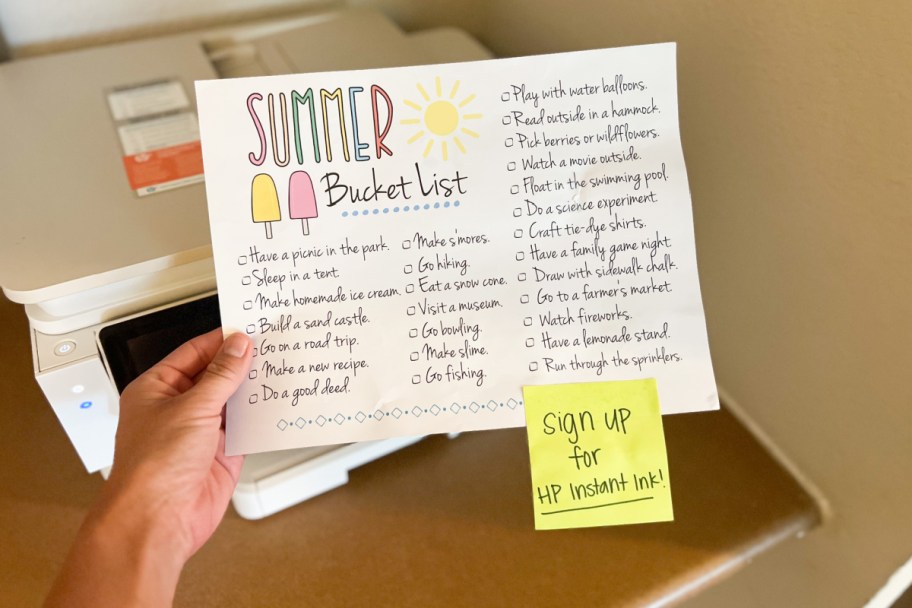 SUMMER
Bucket List
☐ Have a picnic in the park.
☐ Sleep in a tent
☐ Make homemade ice cream.
☐ Build a sand castle.
☐ Go on a road trip.
☐ Make a new recipe.
☐ Do a good deed.
☐ Make s'mores.
☐ Go hiking.
☐ Eat a snow cone.
☐ Visit a museum.
☐ Go bowling.
☐ Make slime.
☐ Go fishing.
☐ Play with water balloons.
☐ Read outside in a hammock.
☐ Pick berries or wildflowers.
☐ Watch a movie outside.
☐ Float in the swimming pool.
☐ Do a science experiment.
☐ Craft tie-dye shirts.
☐ Have a family game night.
☐ Draw with sidewalk chalk.
☐ Go to a farmer's market.
☐ Watch fireworks.
☐ Have a lemonade stand.
☐ Run through the sprinklers.
sign up
for
HP Instant Ink!